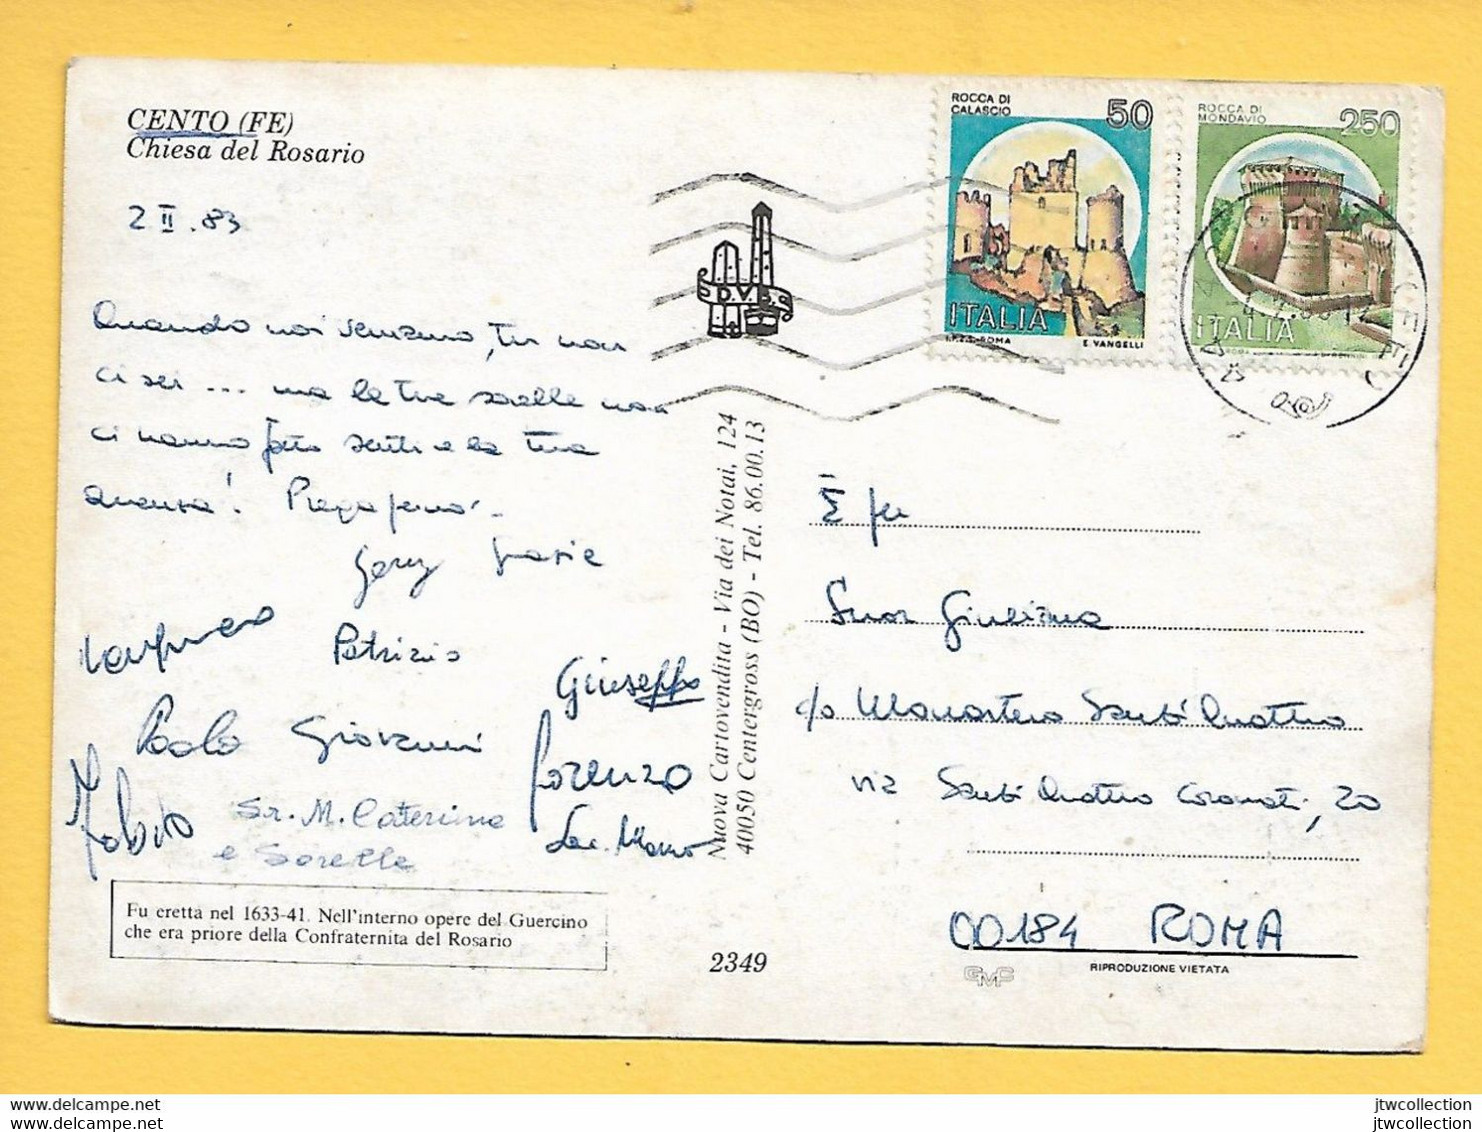 CENTO (FE)
Chiesa del Rosario
2 II .83
Quando noi veniamo, tu non
ci sei ... ma le tue sorelle non
ci hanno fatto sentire la tua
assenza! Prega per noi.
Grazie
Patrizio
Giuseppe
Paolo Giovanni
Lorenzo
Fabio
Sr. M. Caterina
e Sorelle
Fu eretta nel 1633-41. Nell'interno opere del Guercino
che era priore della Confraternita del Rosario
D.V.
Nuova Cartovendita - Via dei Notai, 124
40050 Centergross (BO) - Tel. 86.00.13
2349
ROCCA DI
CALASCIO
50
ITALIA
I.P.Z.S. ROMA E VANGELLI
ROCCA DI
MONDAVIO
250
ITALIA
ROMA
Suor Giuliana
c/o Monastero Santi Quattro
via Santi Quattro Coronati, 20
00184 ROMA
GMC
RIPRODUZIONE VIETATA
jtwcollection
jtwcollection
jtwcollection
jtwcollection